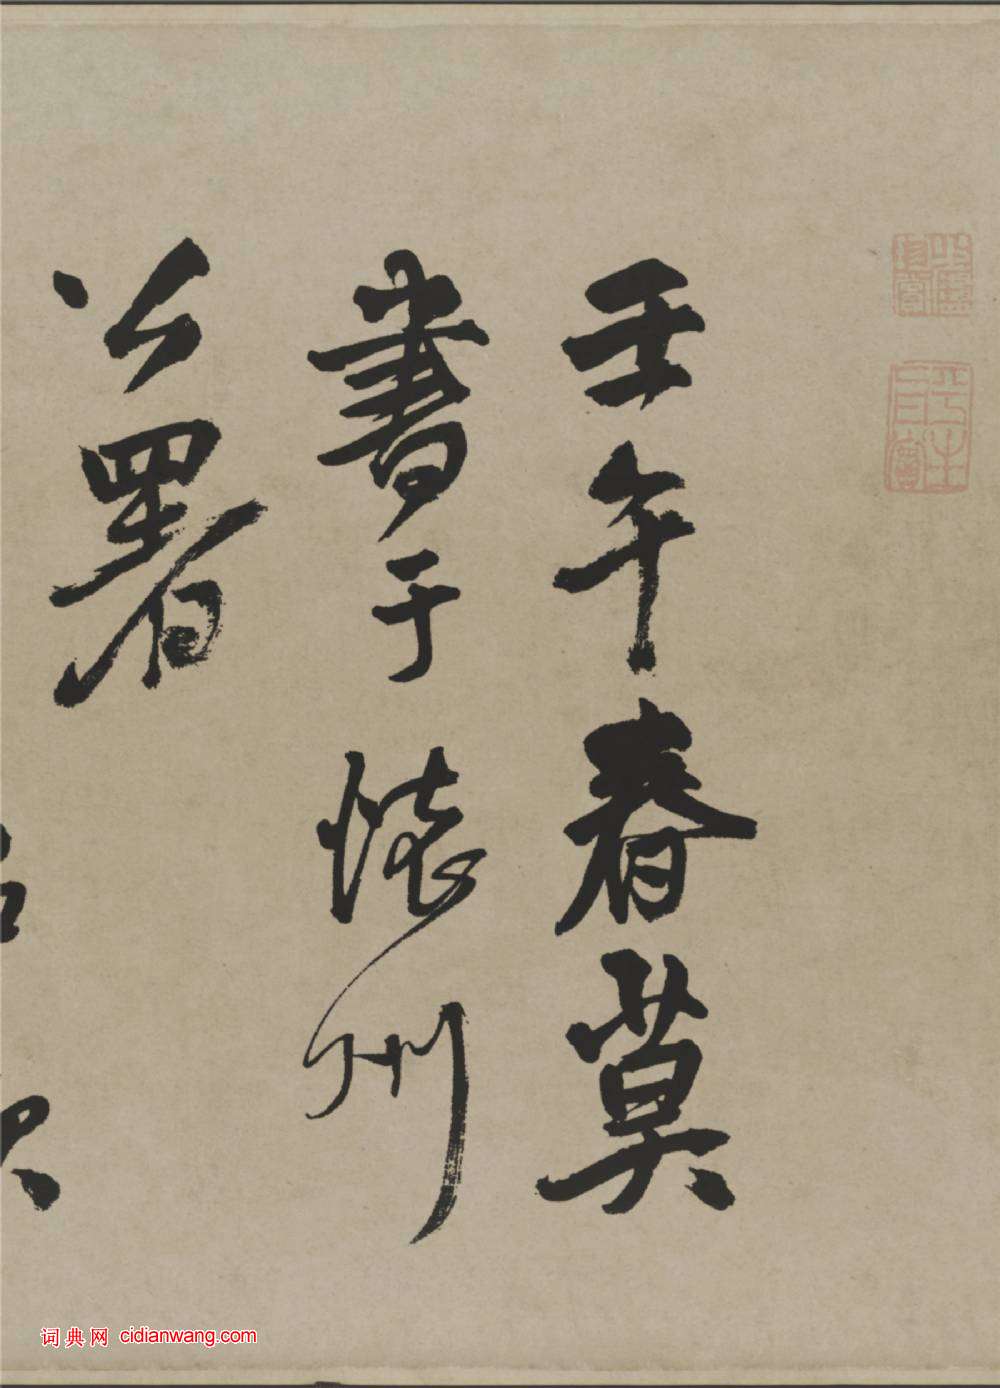 壬午春莫
書于懷州
公署
平生
真賞
词典网 cidianwang.com